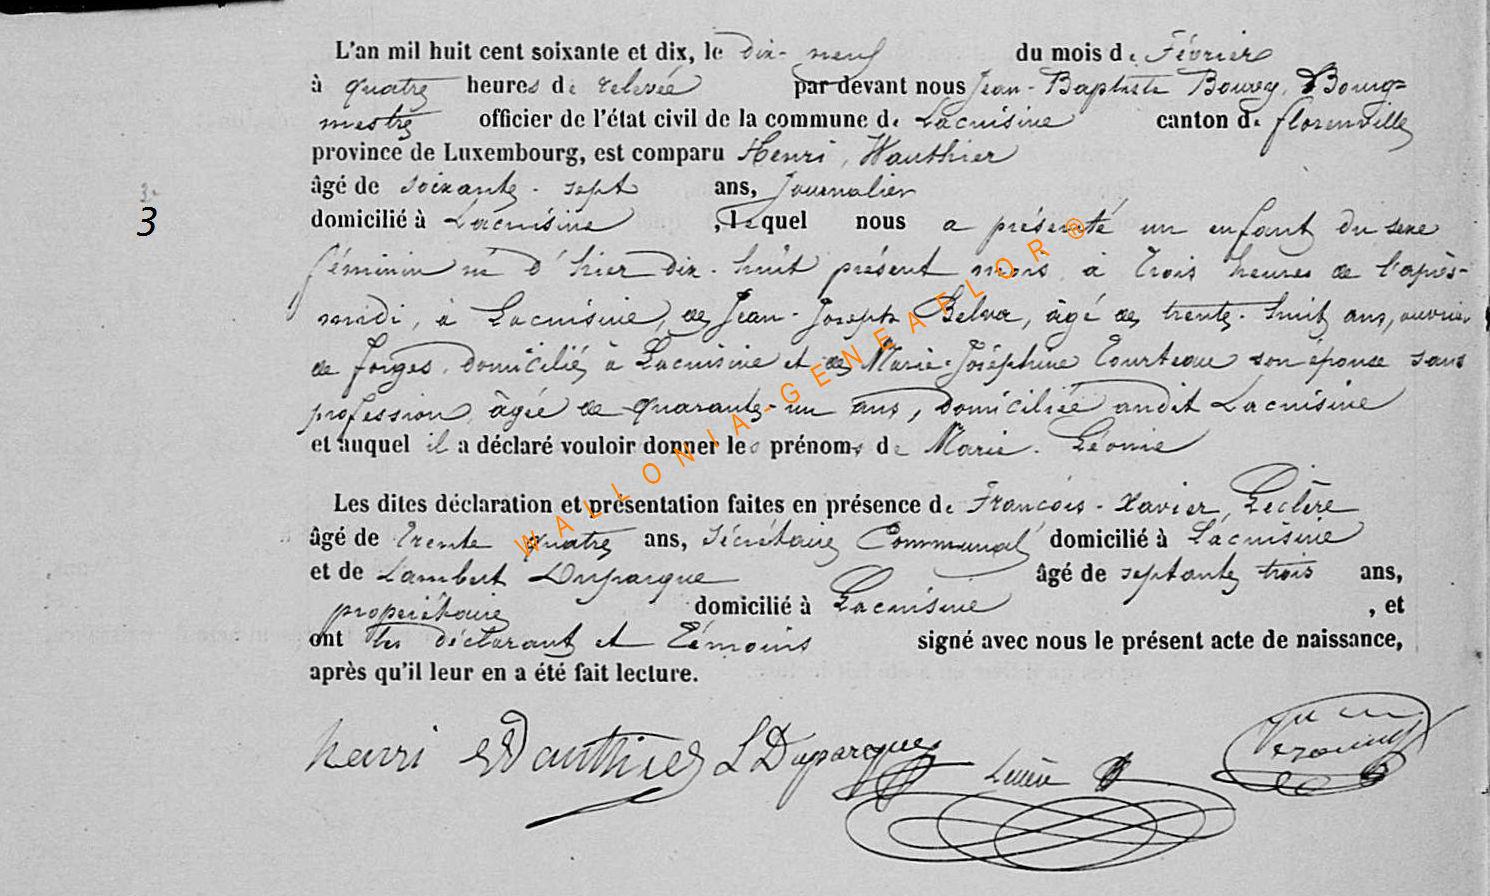 L'an mil huit cent soixante et dix, le dix-neuf du mois de Février
à quatre heures de relevée par devant nous Jean-Baptiste Bourg=
mestre officier de l'état civil de la commune de Lacuisine canton de florenville
province de Luxembourg, est comparu Henri Wauthier
âgé de soixante-sept ans, Journalier
3
domicilié à Lacuisine, lequel nous a présenté un enfant du sexe
féminin né d'hier dix-huit présent mois à trois heures de l'après-
midi, à Lacuisine, de Jean-Joseph Belva, âgé de trente-huit ans, ouvrier
de forges domicilié à Lacuisine et de Marie-Joséphine Tourteau son épouse sans
profession, âgée de quarante-un ans, domiciliée audit Lacuisine
et auquel il a déclaré vouloir donner les prénoms de Marie Léonie
WALLONIA-GENEAFLOR ®
Les dites déclaration et présentation faites en présence de François-Xavier Leclère
âgé de trente quatre ans, Sécrétaire Communal domicilié à Lacuisine
et de Lambert Duparque âgé de septante trois ans,
propriétaire domicilié à Lacuisine, et
ont les déclarant et témoins signé avec nous le présent acte de naissance,
après qu'il leur en a été fait lecture.
henri Wauthier L Duparque Leclère